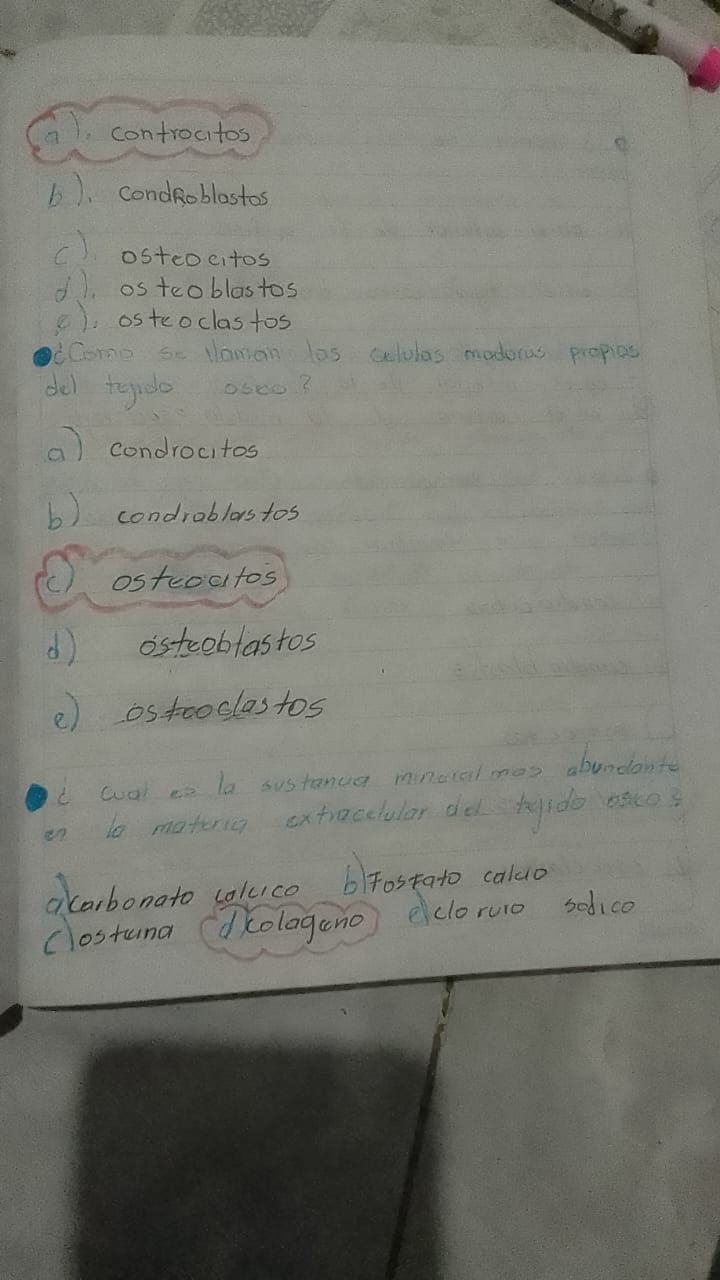 a). controcitos
b). condRoblastos
c). osteocitos
d). osteoblastos
e). osteoclastos
¿Como se llaman las celulas maduras propias
del tejido oseo?
a) condrocitos
b) condrablastos
c) osteocitos
d) osteoblastos
e) osteoclastos
¿ cual es la sustancia mineral mas abundante
en la materia extracelular del tejido oseo?
a) carbonato calcico b) Fosfato calcio
c) osteina d) colageno e) cloruro sodico